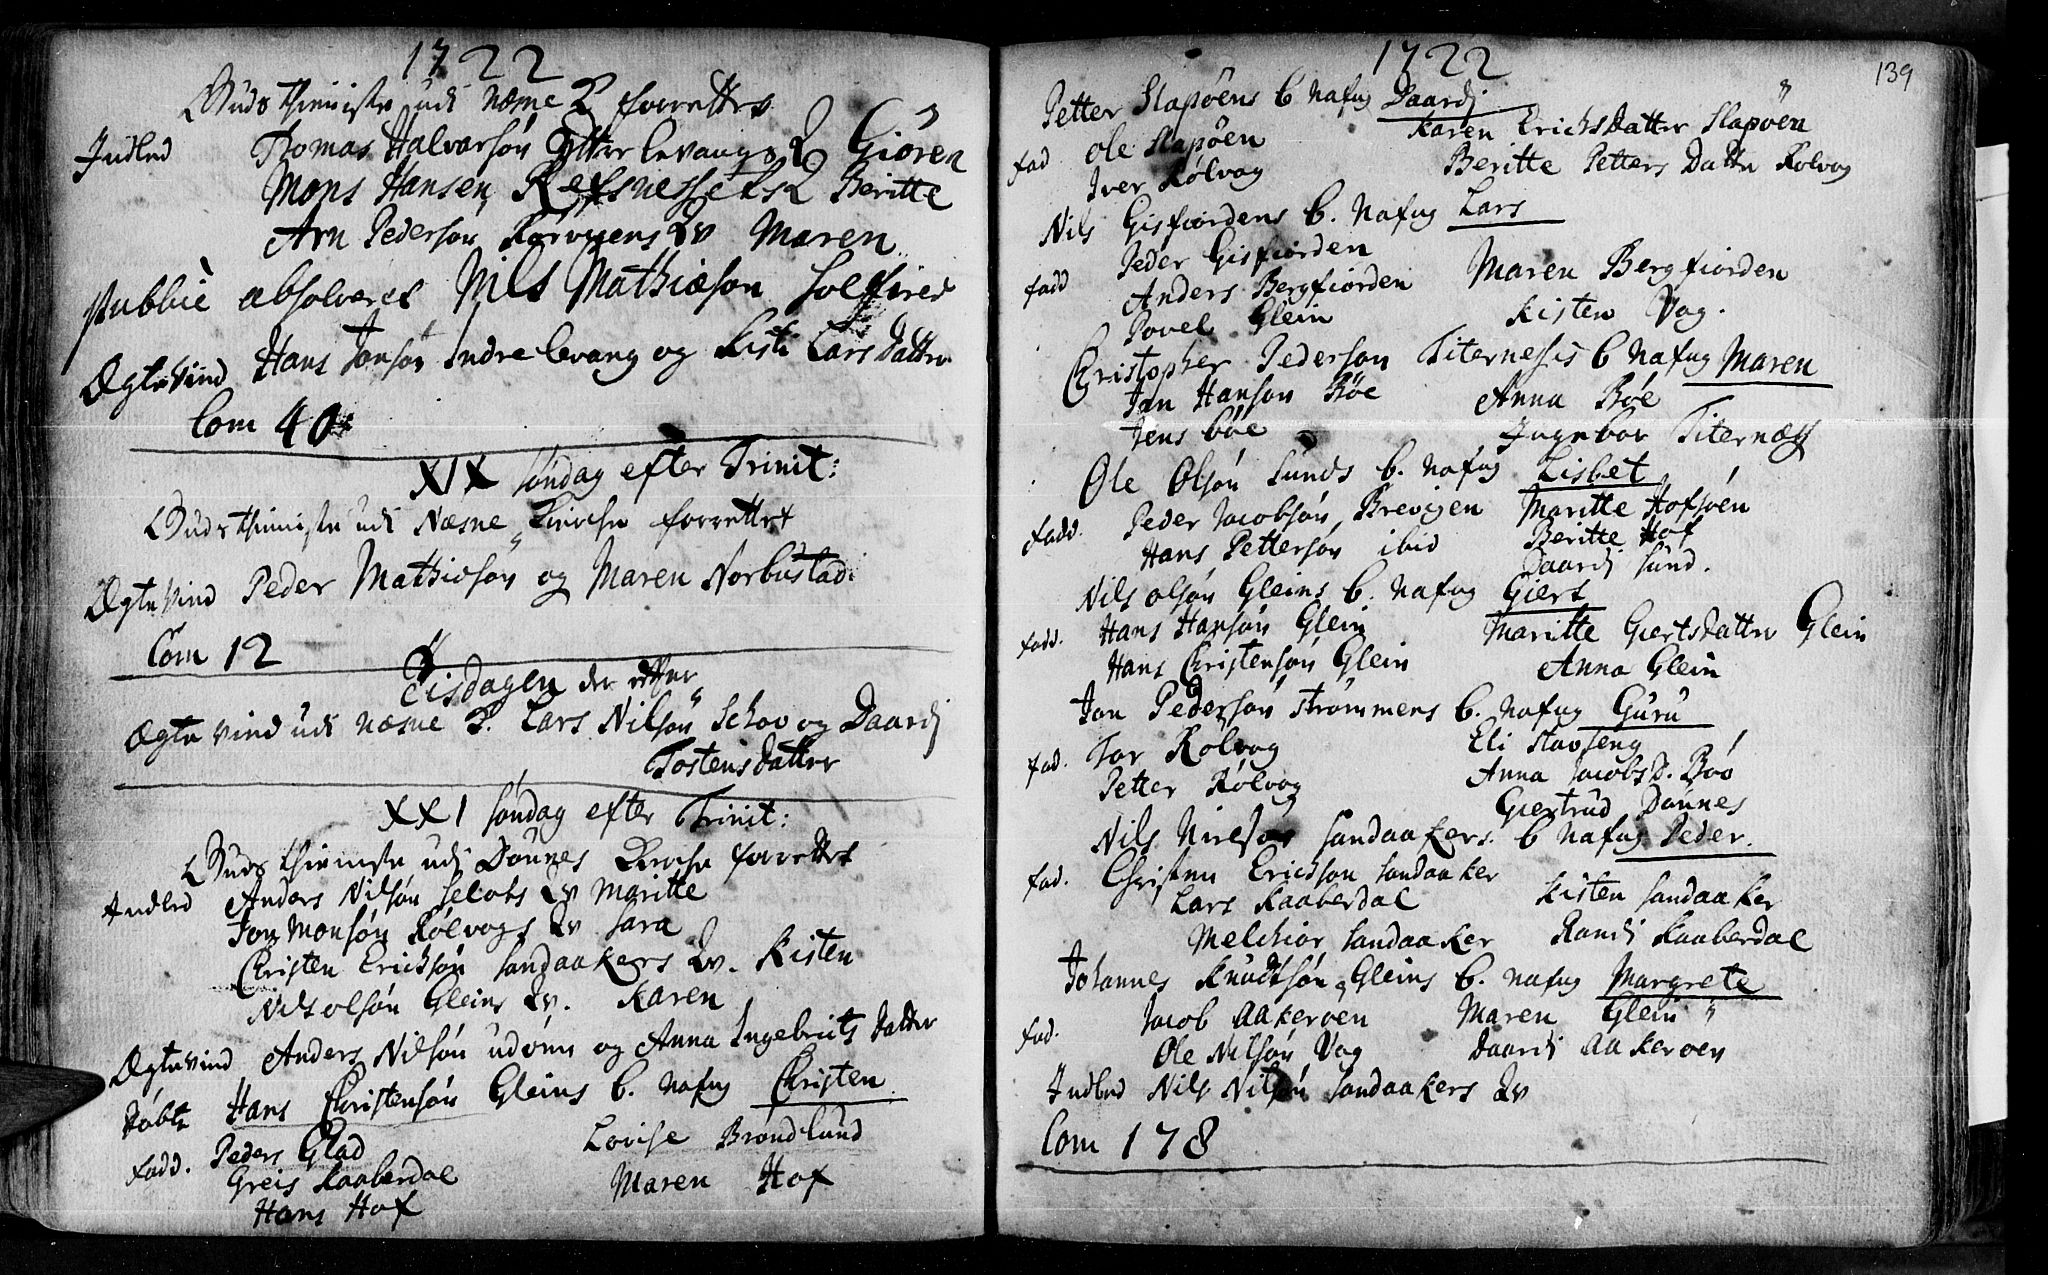 1722
Guds thieniste udi Næsne K forrettet
Indled Thomas Halvarsøn Ytterlevangs Qv Giøren
Mons Hansen Refsnessets Q Beritte
Arn Pedersøn Qv Maren
publicè absolveret Nils Mathiæsøn Solfired
Ægtevied Hans Jonsøn Indre levang og Kisti Larsdatter
Com 40
XIX søndag efter Trinit:
Guds thieniste udi Næsne Kirche forrettet
Ægtevied Peder Mathiesøn og Maren Norbustad
Com 12
Tisdagen der efter
Ægtevied udi Næsne K. Lars Nilsøn Schov og Daardj
Tostensdatter
XXI søndag efter Trinit:
Guds thieniste udi Dønnes Kirche forrettet
Indled Anders Nilsøn Selots Qv Maritte
Jon Monsøn Rølvogs Qv Sara
Christen Ericksøn Sandaakers Qv. Kisten
Nils olsøn Gleins Qv. Karen
Ægtevied Anders Nilsøn og Anna Ingebrits datter
Døbt Hans Christensøn Gleins b. nafng Christen
Fadd. Peders Glad Lovise Brøndlund
Greis Kaaberdal Maren Hof
Hans Hof
1722
139
Petter Slapøens b nafng Daardj
Fad Ole Slapøen Karen Erichsdatter Slapøen
Iver Rølvog Beritte Petters Datter Rølvog
Nils Gisfiordens b. nafng Lars
Fadd Peder Gisfiorden Maren Bergfiorden
Anders Bergfiorden Kisten Vog.
Povel Glein
Christopher Pedersøn Titernessis b nafng Maren
Jon Hansøn Bøe Anna Bøe
Jens bøe Ingebor Titernæss
Ole Olsøn Sunds b. nafng Lisbet
Fadd. Peder Jacobsøn Brevigen Maritte Hofsøen
Hans Pettersøn ibid Beritte Hof
Daardj Sund.
Nils olsøn Gleins b. nafng Giert
Fadd. Hans Hansøn Glein Maritte Giertsdatter Glein
Hans Christensøn Glein Anna Glein
Jon Pedersøn Strømmens b. nafng Guru
Fad. Tor Rølvog Eli Stavseng
Petter Rølvog Anna Jacobsd. Bøe
Giertrud Dønnes
Nils Nielsøn Sandaakers b nafng Peder.
Fad. Christen Ericksøn Sandaaker Kisten Sandaaker
Lars Kaaberdal Randj Kaaberdal
Melchior Sandaaker
Johannes Knudtsøn Gleins b. nafng Margrete
Fad. Jacob Aakerøen Maren Glein
Ole Nilsøn Vog Daardj Aakerøen
Indled Nils Nilsøn Sandaakers Qv
Com 178